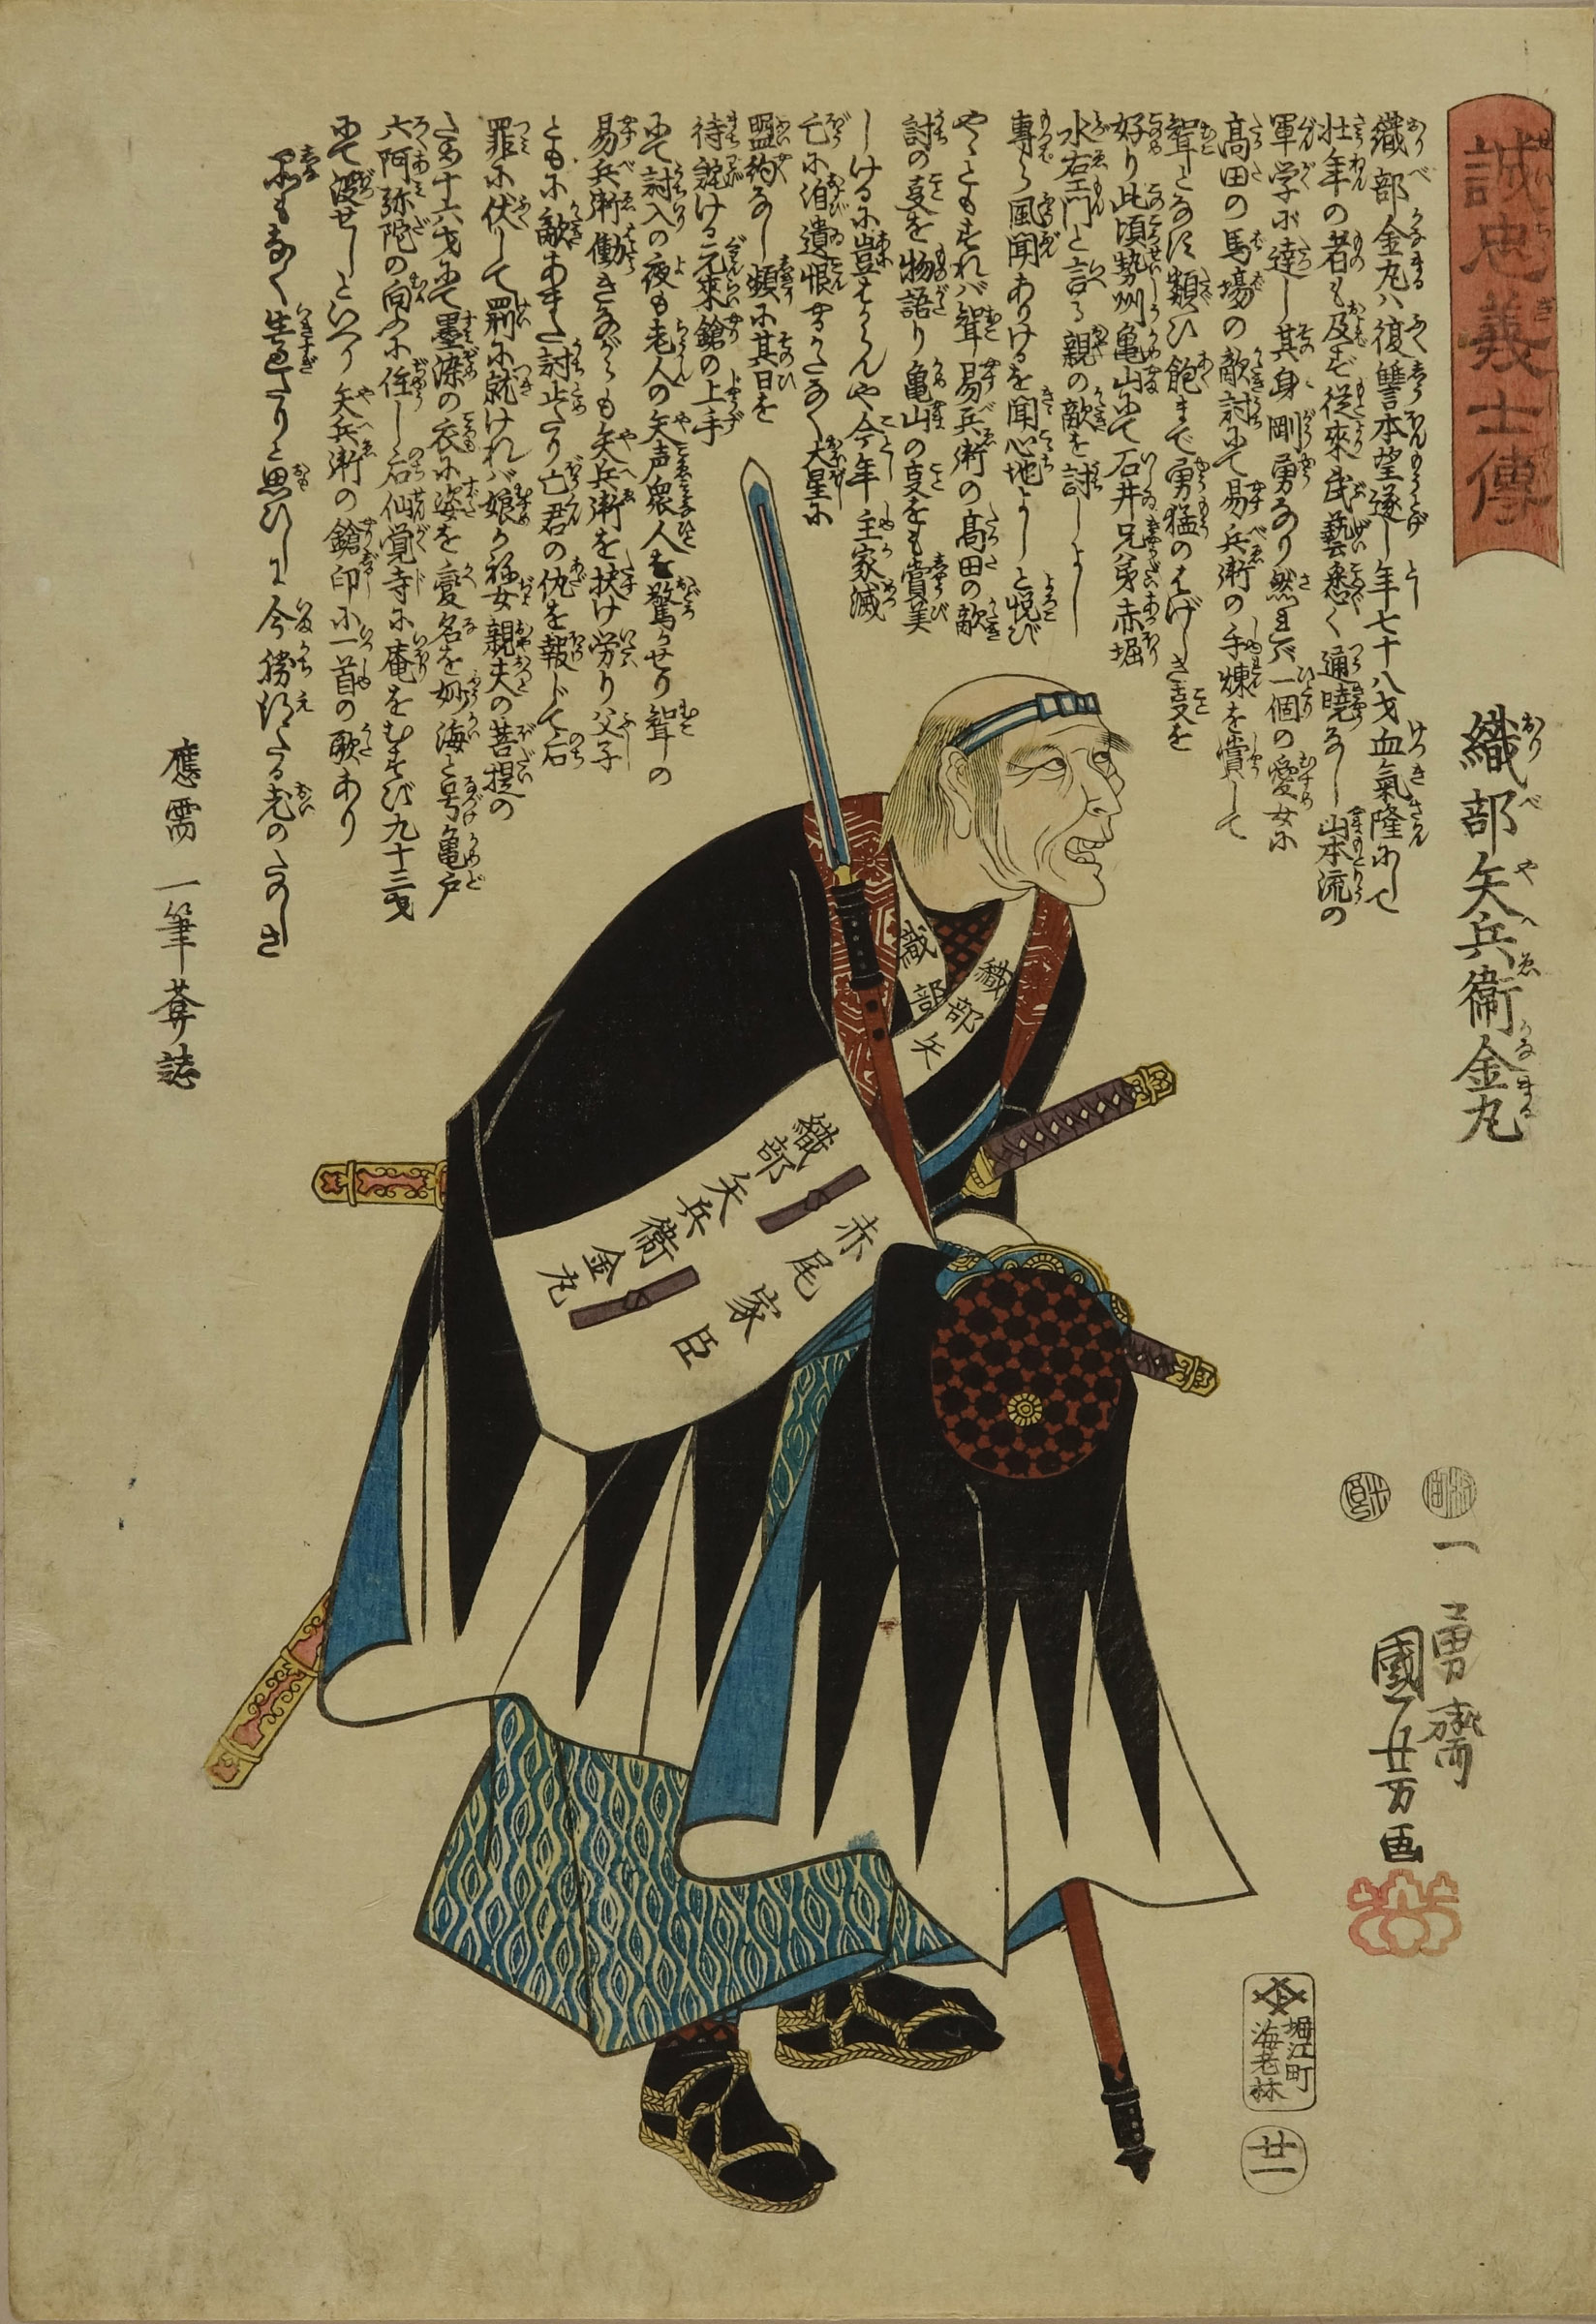 誠忠義士傳
せいちうぎしでん
織部矢兵衞金丸
おりべやへゑかなまる
織部金丸ハ復讐本望遂し年七十八才血氣隆にして
壮年の者も及ばず従來武藝悉く通曉なし山本流の
軍学に達し其身剛勇なり然れバ一個の愛女に
髙田の馬塲の敵討にて易兵衛の手煉を賞して
聟となす類ひ飽まで勇猛のはげしき叓を
好り此頃勢州亀山にて石井兄弟赤堀
水右エ門と言る親の敵を討しよし
專ら風聞ありけるを聞心地よしと悦び
やゝともすれバ聟易兵衛の髙田の敵
討の叓を物語り亀山の叓をも賞美
しけるに豈はからんや今年主家滅
亡に泊遺恨やるかたなく大星に
盟約なし頻に其日を
待詫ける元來鎗の上手
にて討入の夜も老人の矢声衆人を驚かせり聟の
易兵衛働きながらも矢兵衛を扶け労り父子
ともに敵あまた討止たり亡君の仇を報じて后
罪に伏して罰に就けれバ娘か祢女親夫の菩提の
ため十六才にて墨染の衣に姿を変名を妙海と号亀戸
六阿弥陀の向ふに住し后仙覚寺に庵をむすび九十三才
にて没せしといへり矢兵衛の鎗印に一首の歌あり
雪も
なく生過たりと思ひしに今勝得たる老のたのしさ
應需 一筆葊誌
織部
織部矢
織部矢兵衛金丸
赤尾家臣
一勇齋
國芳画
堀江町
海老林
廿一